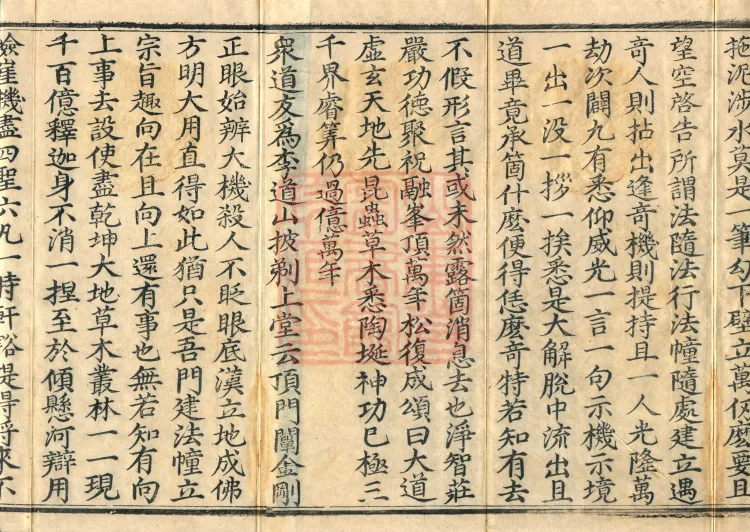 拖泥涉水莫是一筆勾下壁立萬仞麼要且
望空啓告所謂法隨法行法幢隨處建立遇
竒人則拈出逢竒機則提持且一人光隆萬
劫次闢九有悉仰威光一言一句示機示境
一出一没一拶一挨悉是大解脫中流出且
道畢竟承箇什麼便得恁麼竒特若知有去
不假形言其或未然露箇消息去也淨智莊
嚴功德聚祝融峯頂萬年松復成頌曰大道
虛玄天地先昆蟲草木悉陶埏神功已極三
千界睿筭仍過億萬年
衆道友爲李道山披剃上堂云頂門闡金剛
正眼始辨大機殺人不眨眼底漢立地成佛
方明大用直得如此猶只是吾門建法幢立
宗旨趣向在且向上還有事也無若知有向
上事去設使盡乾坤大地草木叢林一一現
千百億釋迦身不消一捏至於傾懸河辯用
嶮崖機盡四聖六凡一時